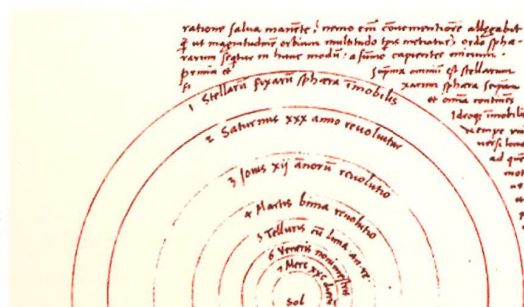 ratione salua manēte, nemo em̄ cōuenientiorē allegabit
ut magnitudinē orbium multitudo tp̄is metiatur, ordo sphæ-
rarum sequitur in hunc modū: a sūmo capientes initium.
prima et suprema omniū est stellarum
fi xarum sphæra seipsam
et omnia continēs
Ideoqȝ īmobilis
nempe
uersi
ad quē
mot
1 Stellarū fixarū sphæra īmobilis
2 Saturnus xxx anno reuoluitur
3 Jouis xij annorū reuolutio
4 Martis bima reuolutio
5 Telluris cū Luna an. re.
6 Veneris nonimestris
7 Merc xxc dierū
Sol